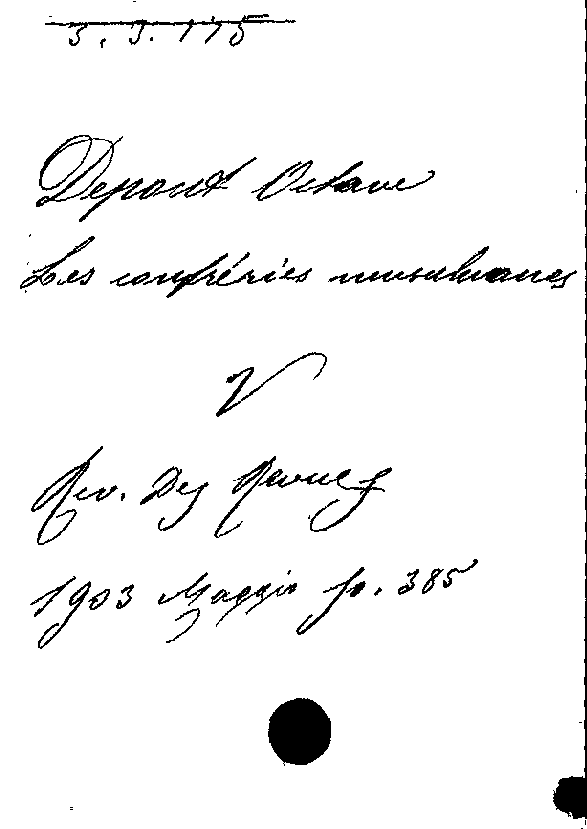 3. J. 175
Depont Octave
Les confréries musulmanes
V
Rev. Des Revues
1903 Maggio p. 385